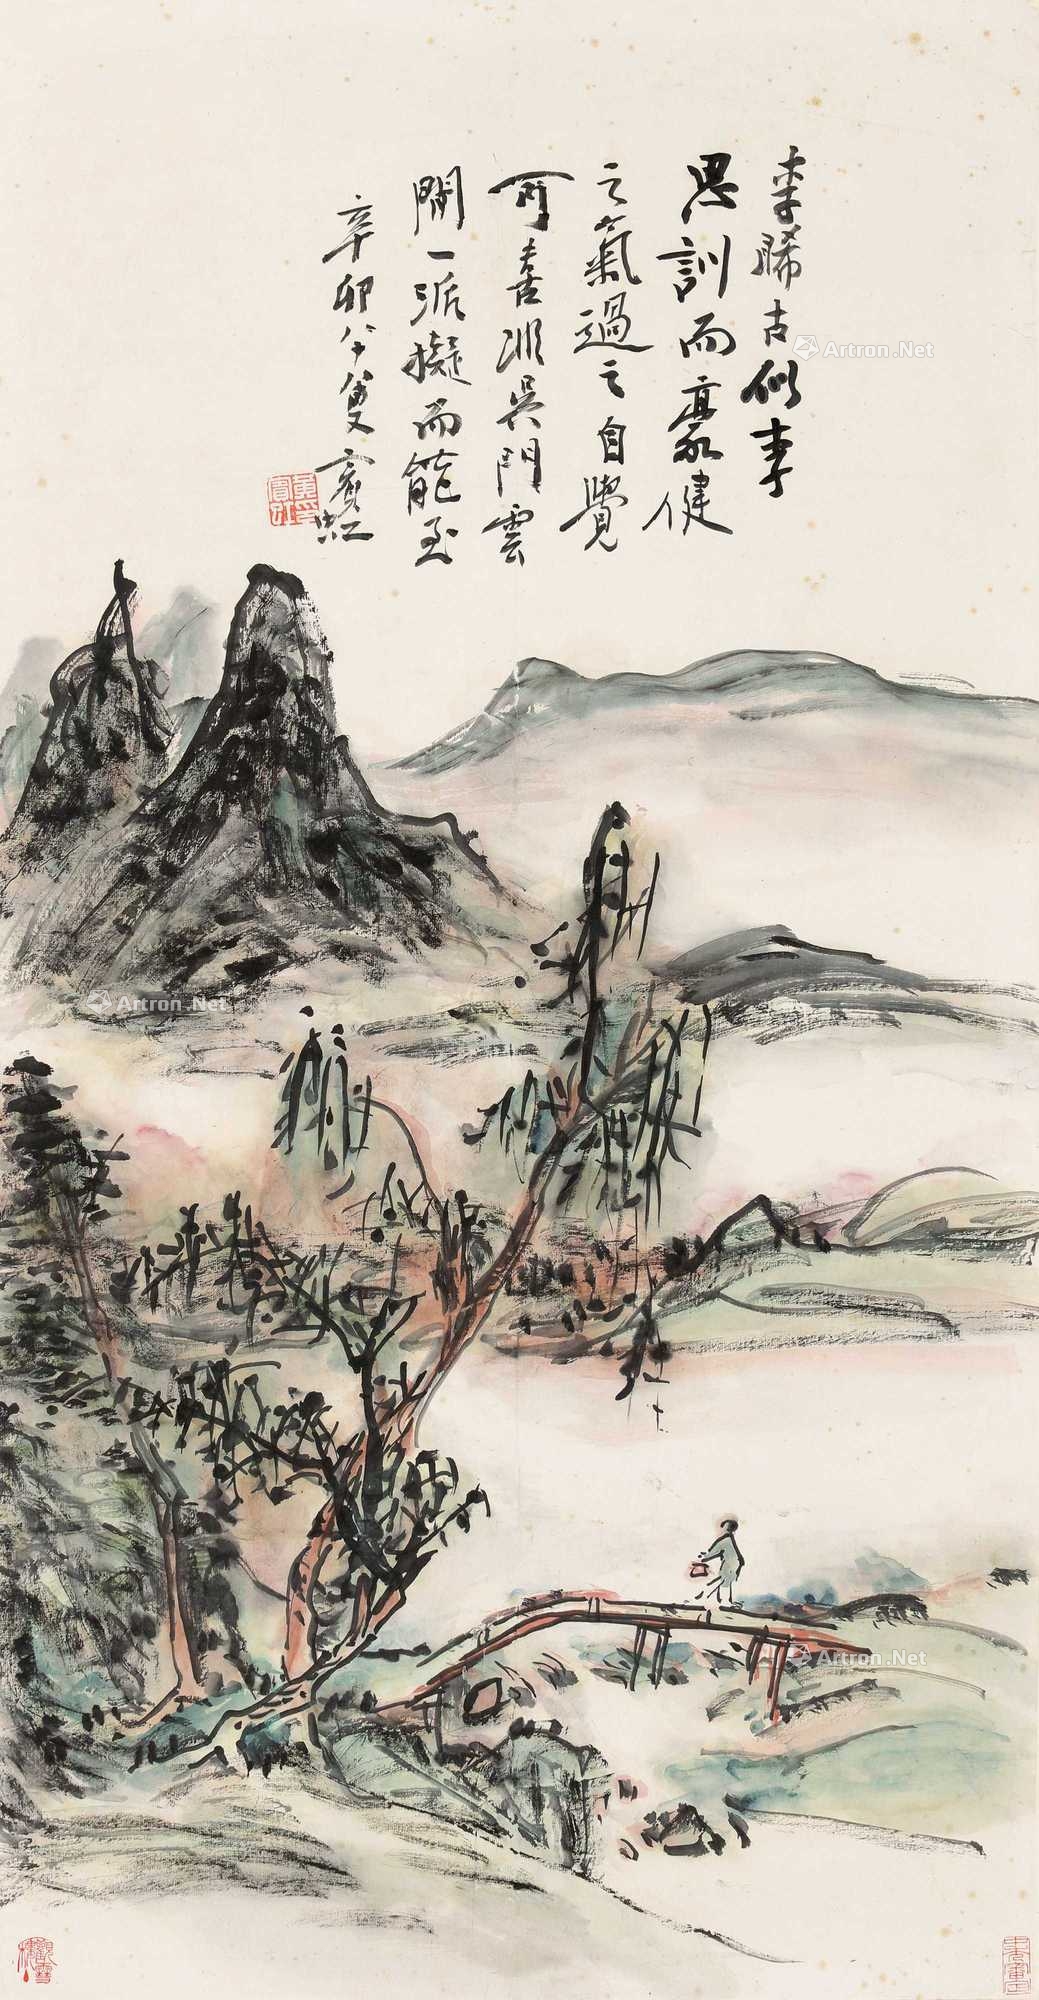 李晞古似李
思訓而豪健
之氣過之自覺
可喜非吳門雲
間一派擬而能至
辛卯八十叟賓虹
黃賓虹印
Artron.Net
Artron.Net
Artron.Net